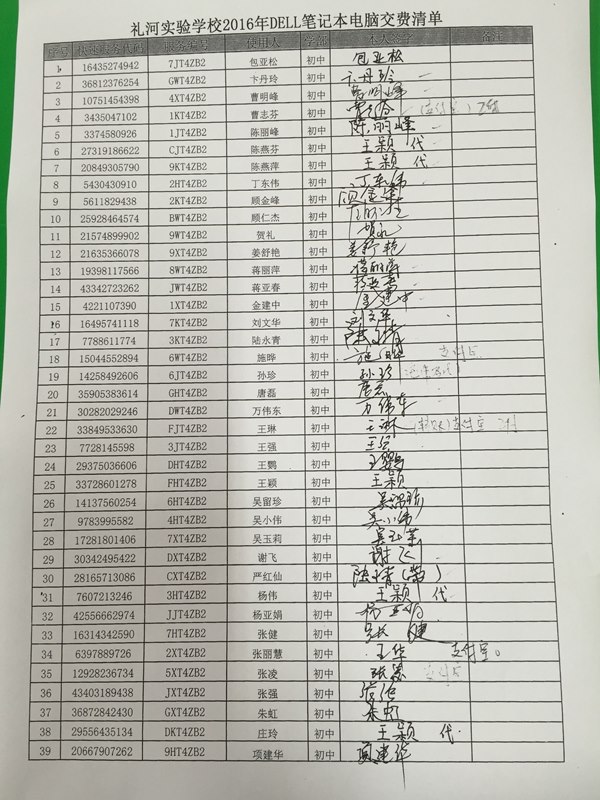 礼河实验学校2016年DELL笔记本电脑交费清单
序号 快速服务代码 服务编号 使用人 学部 本人签字 备注
16435274942 7JT4ZB2 包亚松 初中 包亚松
2 36812376254 GWT4ZB2 卞丹玲 初中 卞丹玲
3 10751454398 4XT4ZB2 曹明峰 初中 曹明峰
4 3435047102 1KT4ZB2 曹志芬 初中
5 3374580926 1JT4ZB2 陈丽峰 初中 陈丽峰
6 27319186622 CJT4ZB2 陈燕芬 初中 王颖 代
7 20849305790 9KT4ZB2 陈燕萍 初中 王颖 代
8 5430430910 2HT4ZB2 丁东伟 初中 丁东伟
9 5611829438 2KT4ZB2 顾金峰 初中 顾金峰
10 25928464574 BWT4ZB2 顾仁杰 初中
11 21574899902 9WT4ZB2 贺礼 初中 贺礼
12 21635366078 9XT4ZB2 姜舒艳 初中 姜舒艳
13 19398117566 8WT4ZB2 蒋丽萍 初中 蒋丽萍
14 43342723262 JWT4ZB2 蒋亚春 初中
15 4221107390 1XT4ZB2 金建中 初中 金建中
16 16495741118 7KT4ZB2 刘文华 初中 刘文华
17 7788611774 3KT4ZB2 陆永青 初中
18 15044552894 6WT4ZB2 施晔 初中 施晔
19 14258492606 6JT4ZB2 孙珍 初中 孙珍
20 35905383614 GHT4ZB2 唐磊 初中 唐磊
21 30282029246 DWT4ZB2 万伟东 初中 万伟东
22 33849533630 FJT4ZB2 王琳 初中 王琳 支付宝
23 7728145598 3JT4ZB2 王强 初中 王强
24 29375036606 DHT4ZB2 王鹦 初中 王鹦
25 33728601278 FHT4ZB2 王颖 初中 王颖
26 14137560254 6HT4ZB2 吴留珍 初中 吴留珍
27 9783995582 4HT4ZB2 吴小伟 初中 吴小伟
28 17281801406 7XT4ZB2 吴玉莉 初中 吴玉莉
29 30342495422 DXT4ZB2 谢飞 初中 谢飞
30 28165713086 CXT4ZB2 严红仙 初中
31 7607213246 3HT4ZB2 杨伟 初中 王颖 代
32 42556662974 JJT4ZB2 杨亚娟 初中 杨亚娟
33 16314342590 7HT4ZB2 张健 初中 张健
34 6397889726 2XT4ZB2 张丽慧 初中 王华 支付宝。
35 12928236734 5XT4ZB2 张凌 初中
36 43403189438 JXT4ZB2 张强 初中 张强
37 36872842430 GXT4ZB2 朱虹 初中 朱虹
38 29556435134 DKT4ZB2 庄玲 初中 王颖 代
39 20667907262 9HT4ZB2 项建华 初中 项建华